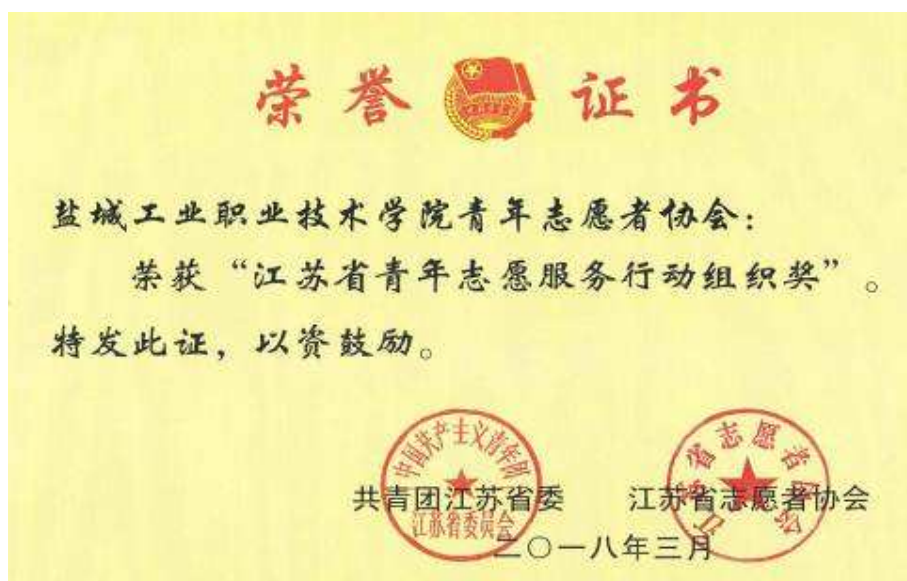 荣誉证书
盐城工业职业技术学院青年志愿者协会：
荣获“江苏省青年志愿服务行动组织奖”。
特发此证，以资鼓励。
中国共产主义青年团
江苏省委员会
江苏省志愿者协会
共青团江苏省委 江苏省志愿者协会
二〇一八年三月